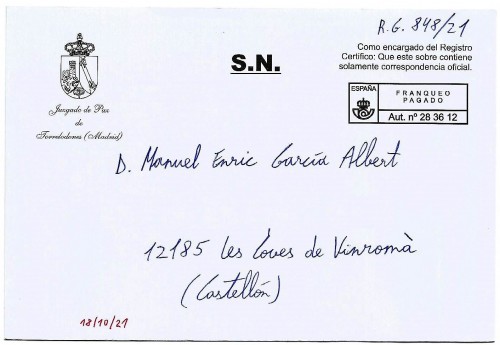 R.G. 848/21
Como encargado del Registro
Certifico: Que este sobre contiene
solamente correspondencia oficial.
S.N.
Juzgado de Paz
de
Torrelodones (Madrid)
ESPAÑA
FRANQUEO
PAGADO
Aut. nº 28 36 12
D. Manuel Enric García Albert
12185 Les Coves de Vinromà
(Castellón)
18/10/21